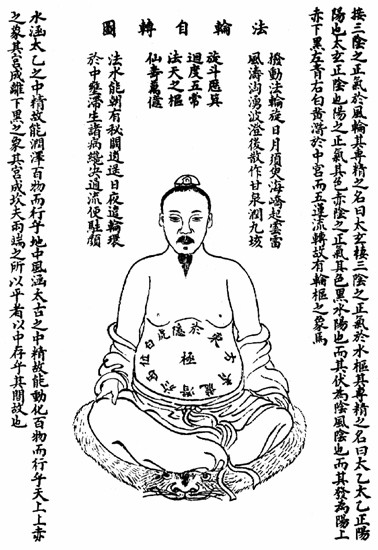 法輪自轉圖
接三陰之正氣於風輪其專精之名曰太玄接三陰之正氣於水樞其專精之名曰太乙太乙正陽
陽也太玄正陰也陽之正氣其色赤陰之正氣其色黑水陽也而其伏為陰風陰也而其發為陽上
赤下黑左青右白黃潛於中宮而五運流轉故有輪樞之象焉
撥動法輪旋日月須臾海嶠起雲雷
風濤洶湧波澄後散作甘泉潤九垓
旋斗歷箕
迴度五常
法天之樞
仙壽萬億
法水能朝有秘關逍遙日夜遣輪環
於中壅滯生諸病纔決通流便駐顏
極
水涵太乙之中精故能潤澤百物而行乎地中風涵太玄之中精故能動化百物而行乎天上上赤
之象其宮成離下黑之象其宮成坎夫兩端之所以平者以中存乎其間故也